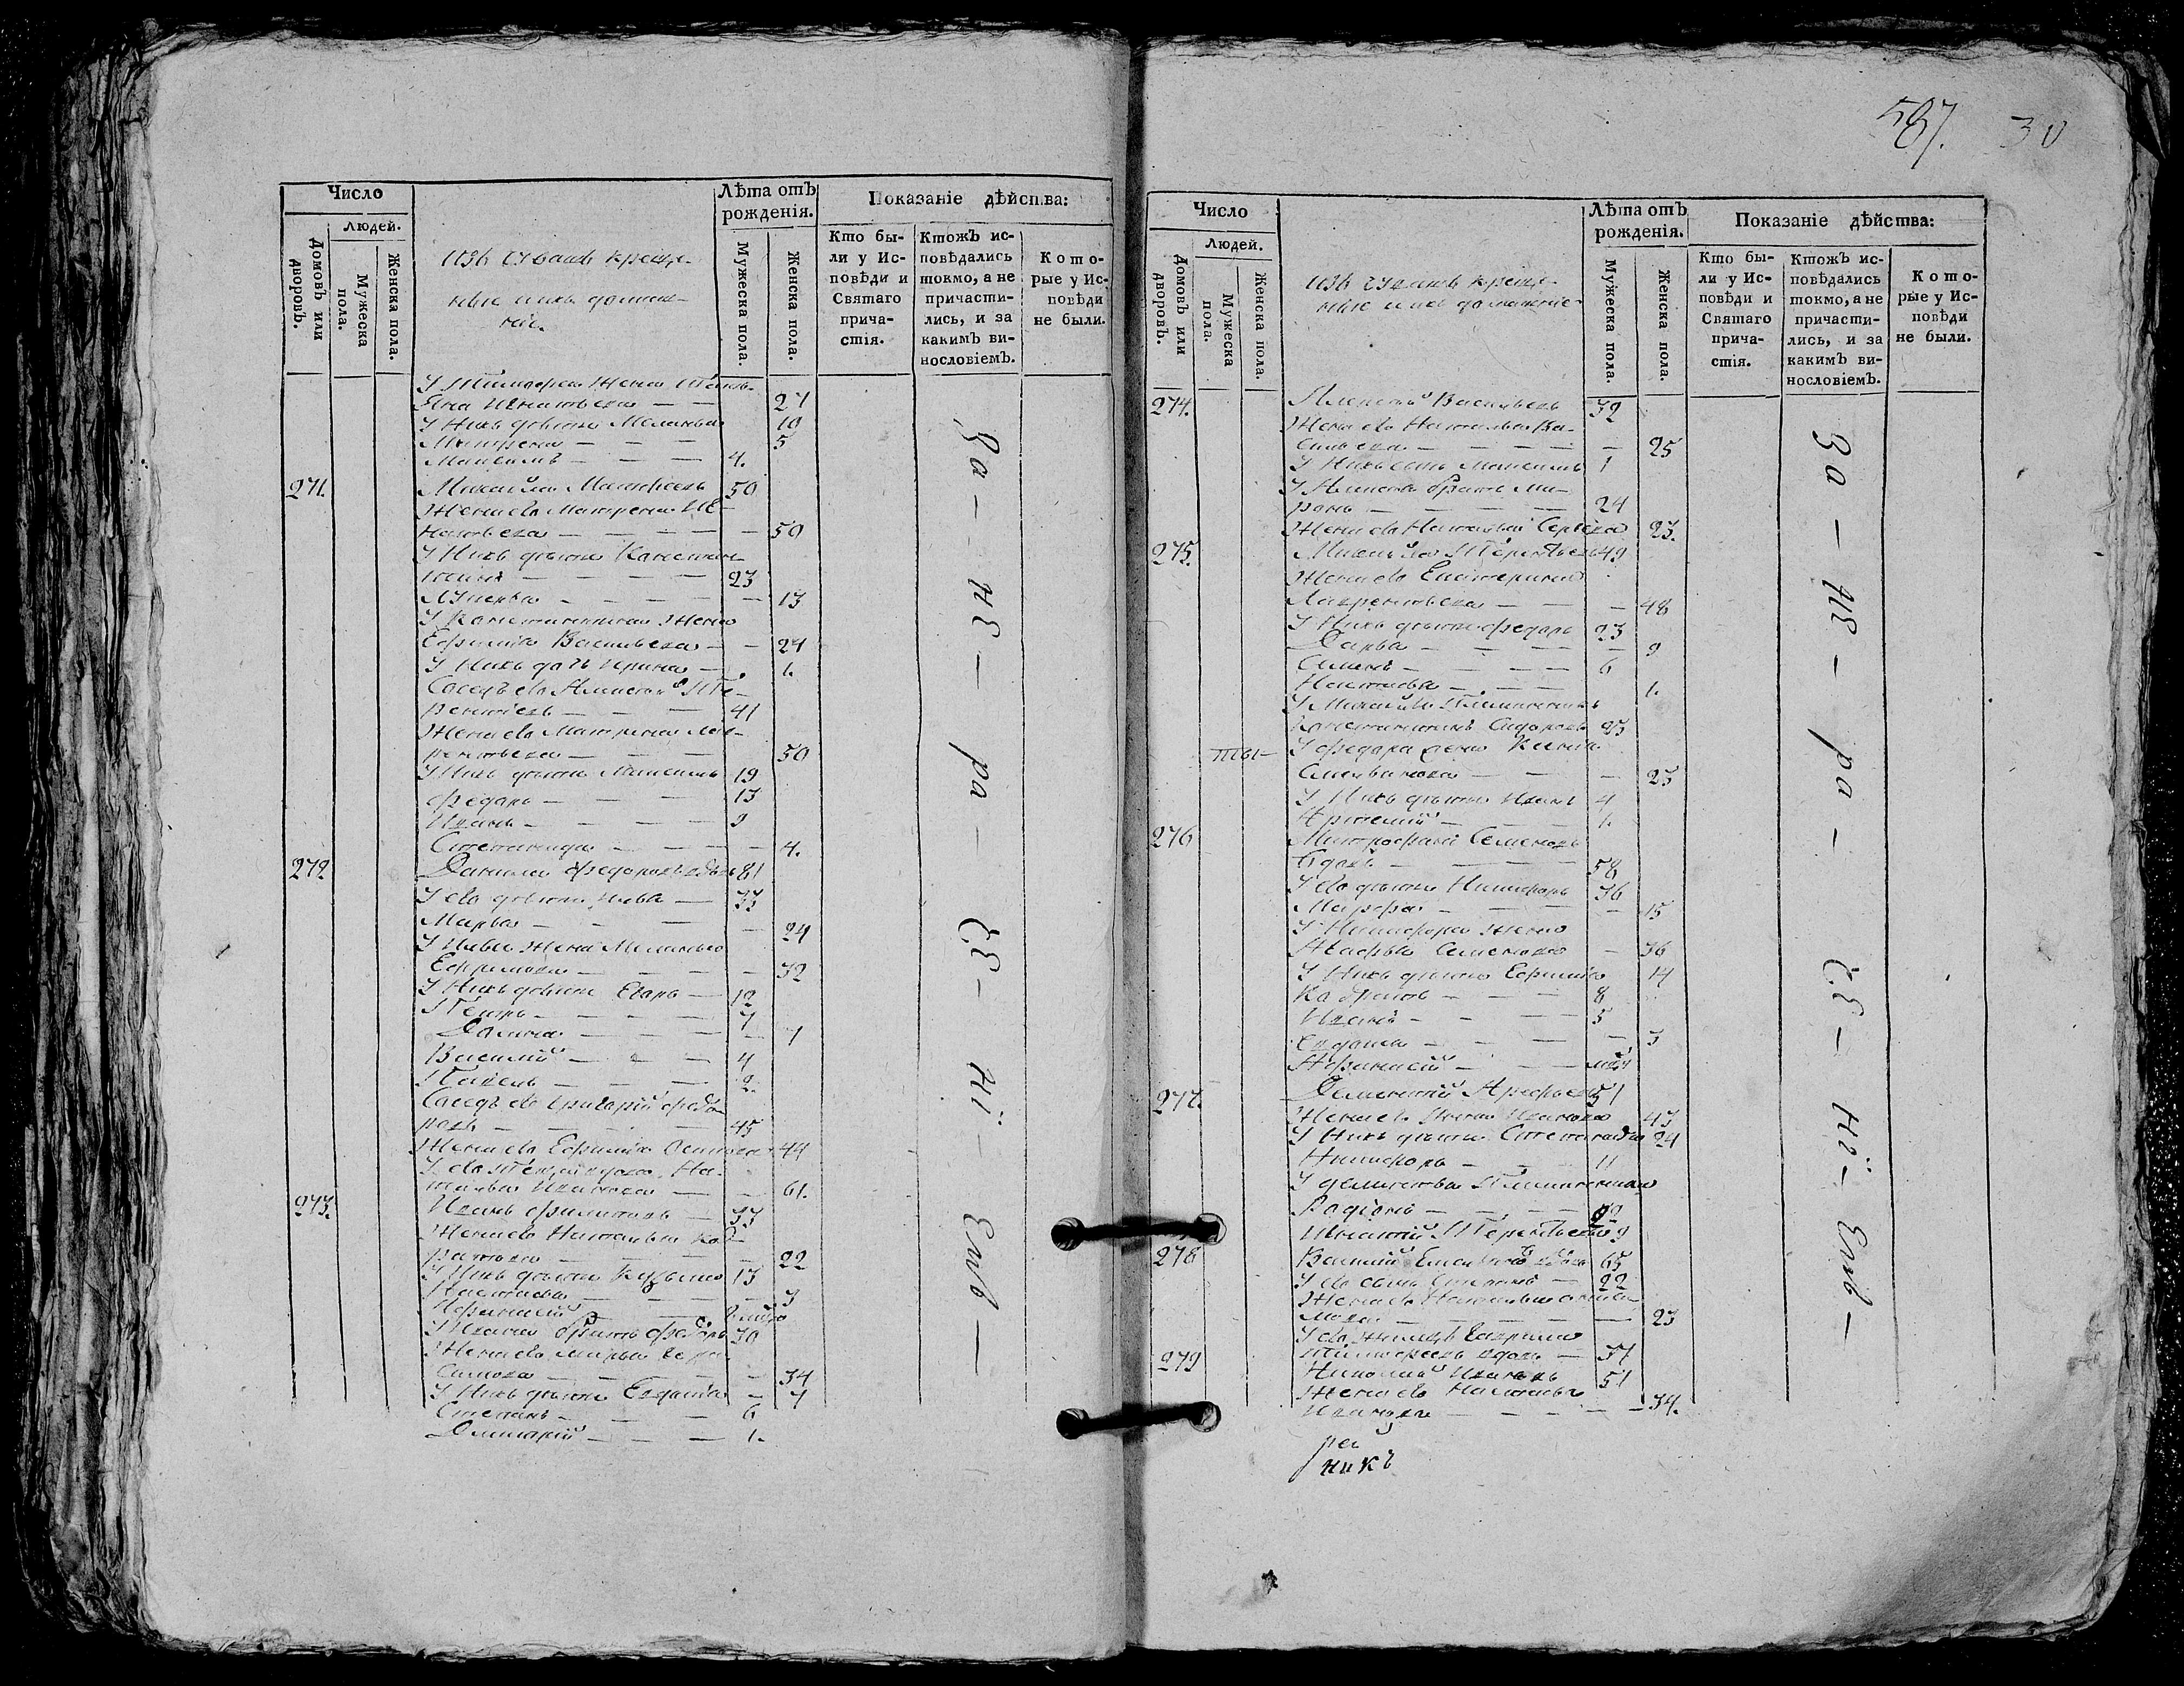 Число
Людей.
Домовъ или дворовъ.
Мужеска пола.
Женска пола.
изъ чувашъ креще-
ные и ихъ домаш-
ніе
Лѣта отъ рожденія.
Мужеска пола.
Женска пола.
Показаніе дѣйства:
Кто бы-
ли у Ис-
повѣди и
Святаго
прича-
стія.
Ктожъ ис-
повѣдались
токмо, а не
причасти-
лись, и за
какимъ ви-
нословіемъ.
Кото-
рые у Ис-
повѣди
не были.
У Тимофея жена
Игнатьева — — 27
У нихъ дѣти Меланья 10
Матрена — — — 5
Максимъ — — — 4.
271. Михайла Матфеевъ 50
Жена ево Матрена Иг-
натьева — — — — 50
У нихъ дѣти Констан-
тинъ — — — — 23
Лукерья — — — — 13
У Константина жена
Ефимія Васильева — — 24
У нихъ дочь Ирина — 1.
Соседъ ево Алексѣй Те-
рентіевъ — — — 41
Жена ево Матрена Лав-
рентьева — — — 50
У нихъ дѣти Максимъ 19
Федоръ — — — 13
Иванъ — — — — 9
Степанида — — — — 4.
272 Данила Федоровъ вдовъ 81
У ево дѣти Илья — 33
Марья — — — — 24
У Ильи жена Меланья
Ефремова — — — — 32
У нихъ дѣти Егоръ — 12
Петръ — — — — 7
— — — — 7
Василий — — — 4
Павелъ — — — 2.
Соседъ ево Григорій Федо-
ровъ — — — — 45
Жена ево Ефимія Осипова 44
У ево вдова На-
талья Иванова — — 61.
273. Иванъ Филиповъ — 33
Жена ево Наталья Код-
ратова — — — 22
У нихъ дѣти Кузьма 13
Настасья — — — — 3
Афанасей —
У Ивана братъ Федоръ 30
Жена ево Марья Гера-
симова — — — — 34
У нихъ дѣти Евдокія — 7
Степанъ — — — 6
Дмитрій — — — 1.
За — не — ра — че — ні — емъ —
587. 30
Число
Людей.
Домовъ или дворовъ.
Мужеска пола.
Женска пола.
изъ чувашъ креще-
ные и ихъ домашніе
Лѣта отъ рожденія.
Мужеска пола.
Женска пола.
Показаніе дѣйства:
Кто бы-
ли у Ис-
повѣди и
Святаго
прича-
стія.
Ктожъ ис-
повѣдались
токмо, а не
причасти-
лись, и за
какимъ ви-
нословіемъ.
Кото-
рые у Ис-
повѣди
не были.
274. Алексѣй Васильевъ 32
Жена ево Наталья Ва-
сильева — — — — — 25
У нихъ сынъ Максимъ 1
У Алексѣя братъ Ми-
ронъ — — — — 24
Жена ево Наталья Сергѣева 23.
275. Михайла Терентьевъ 49
Жена ево Екатерина
Лаврентьева — — — 48
У нихъ дѣти Федоръ 23
Дарья — — — — — 9
Семенъ — — — — 6
Настасья — — — 1.
У Михайлы племянникъ
Константинъ Сидоровъ 23
У Федора жена Ксенія
Емельянова — — — 23
У нихъ дѣти Иванъ 4
Артемій — — — 1.
276 Митрофанъ Семеновъ
вдовъ — — — — 58
У ево дѣти Никифоръ 36
Марфа — — — — 15
У Никифора жена
Агафья Семенова — 36
У нихъ дѣти Ефимія 14
Кодратъ — — — 8
Иванъ — — — 5
Евдокія — — — — 3
Афанасей — — —
277. Дементій Арефьевъ 51
Жена ево Анна Иванова 43
У нихъ дѣти Степанида 24
Никифоръ — — — 11
У Дементья племянники
Родіонъ — — —
Игнатій Терентьевъ 9
278 Василій вдовъ 65
У ево сынъ Степанъ — 22
Жена ево Наталья
— — — — 23
У ево Гаврила
Тимофеевъ вдовъ — 37
279 Николай Ивановъ 51
Жена ево Настасья
Иванова — — — — — 34.
За — не — ра — че — ні — емъ —
рей
никъ